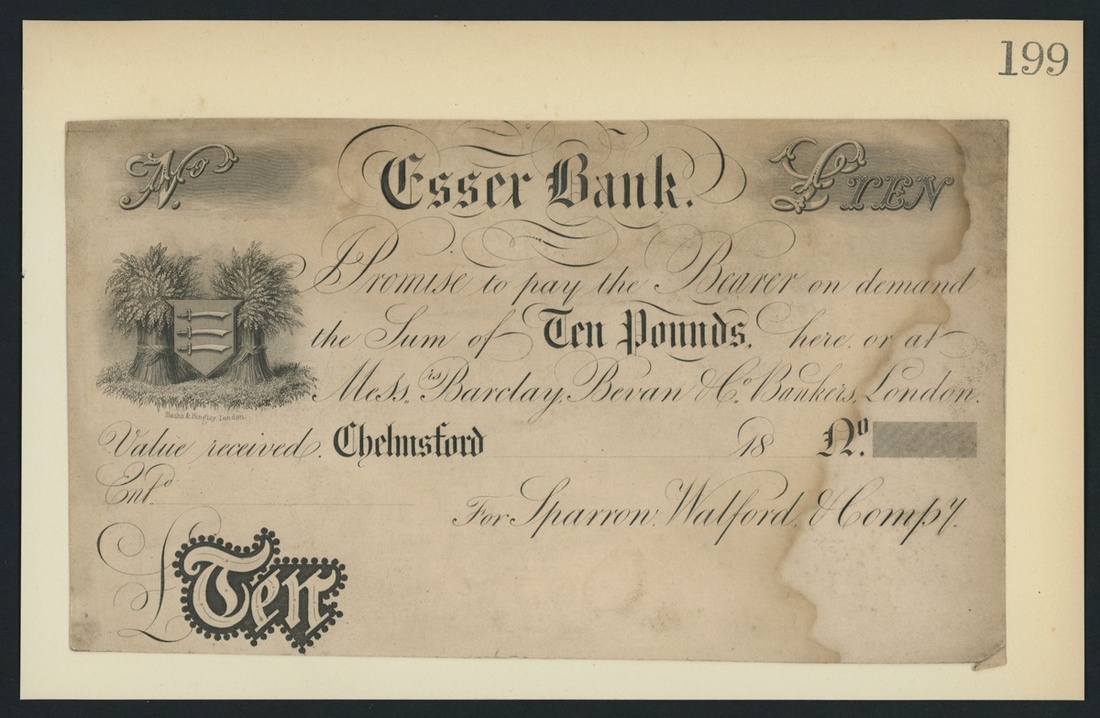 199
No. Essex Bank. £TEN
I Promise to pay the Bearer on demand
the Sum of Ten Pounds, here, or at
Messrs. Barclay, Bevan & Co. Bankers, London.
Basire & Hingley, London.
Value received. Chelmsford 18 No.
Entd.
For Sparrow, Walford, & Compy.
£Ten